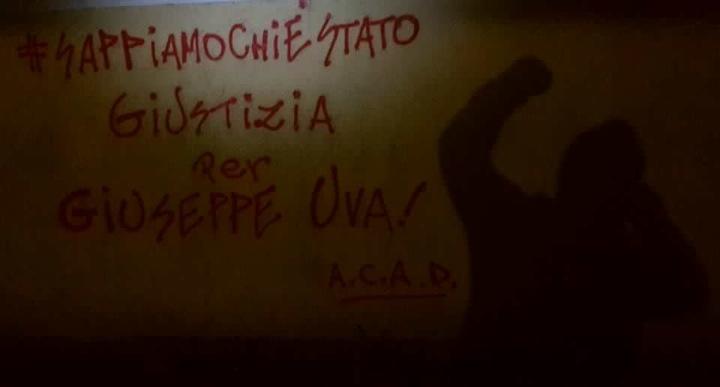 #SAPPiAMOCHiÉSTATO
GiUSTiZiA
Per
GiUSEPPE UVA!
A.C.A.D.